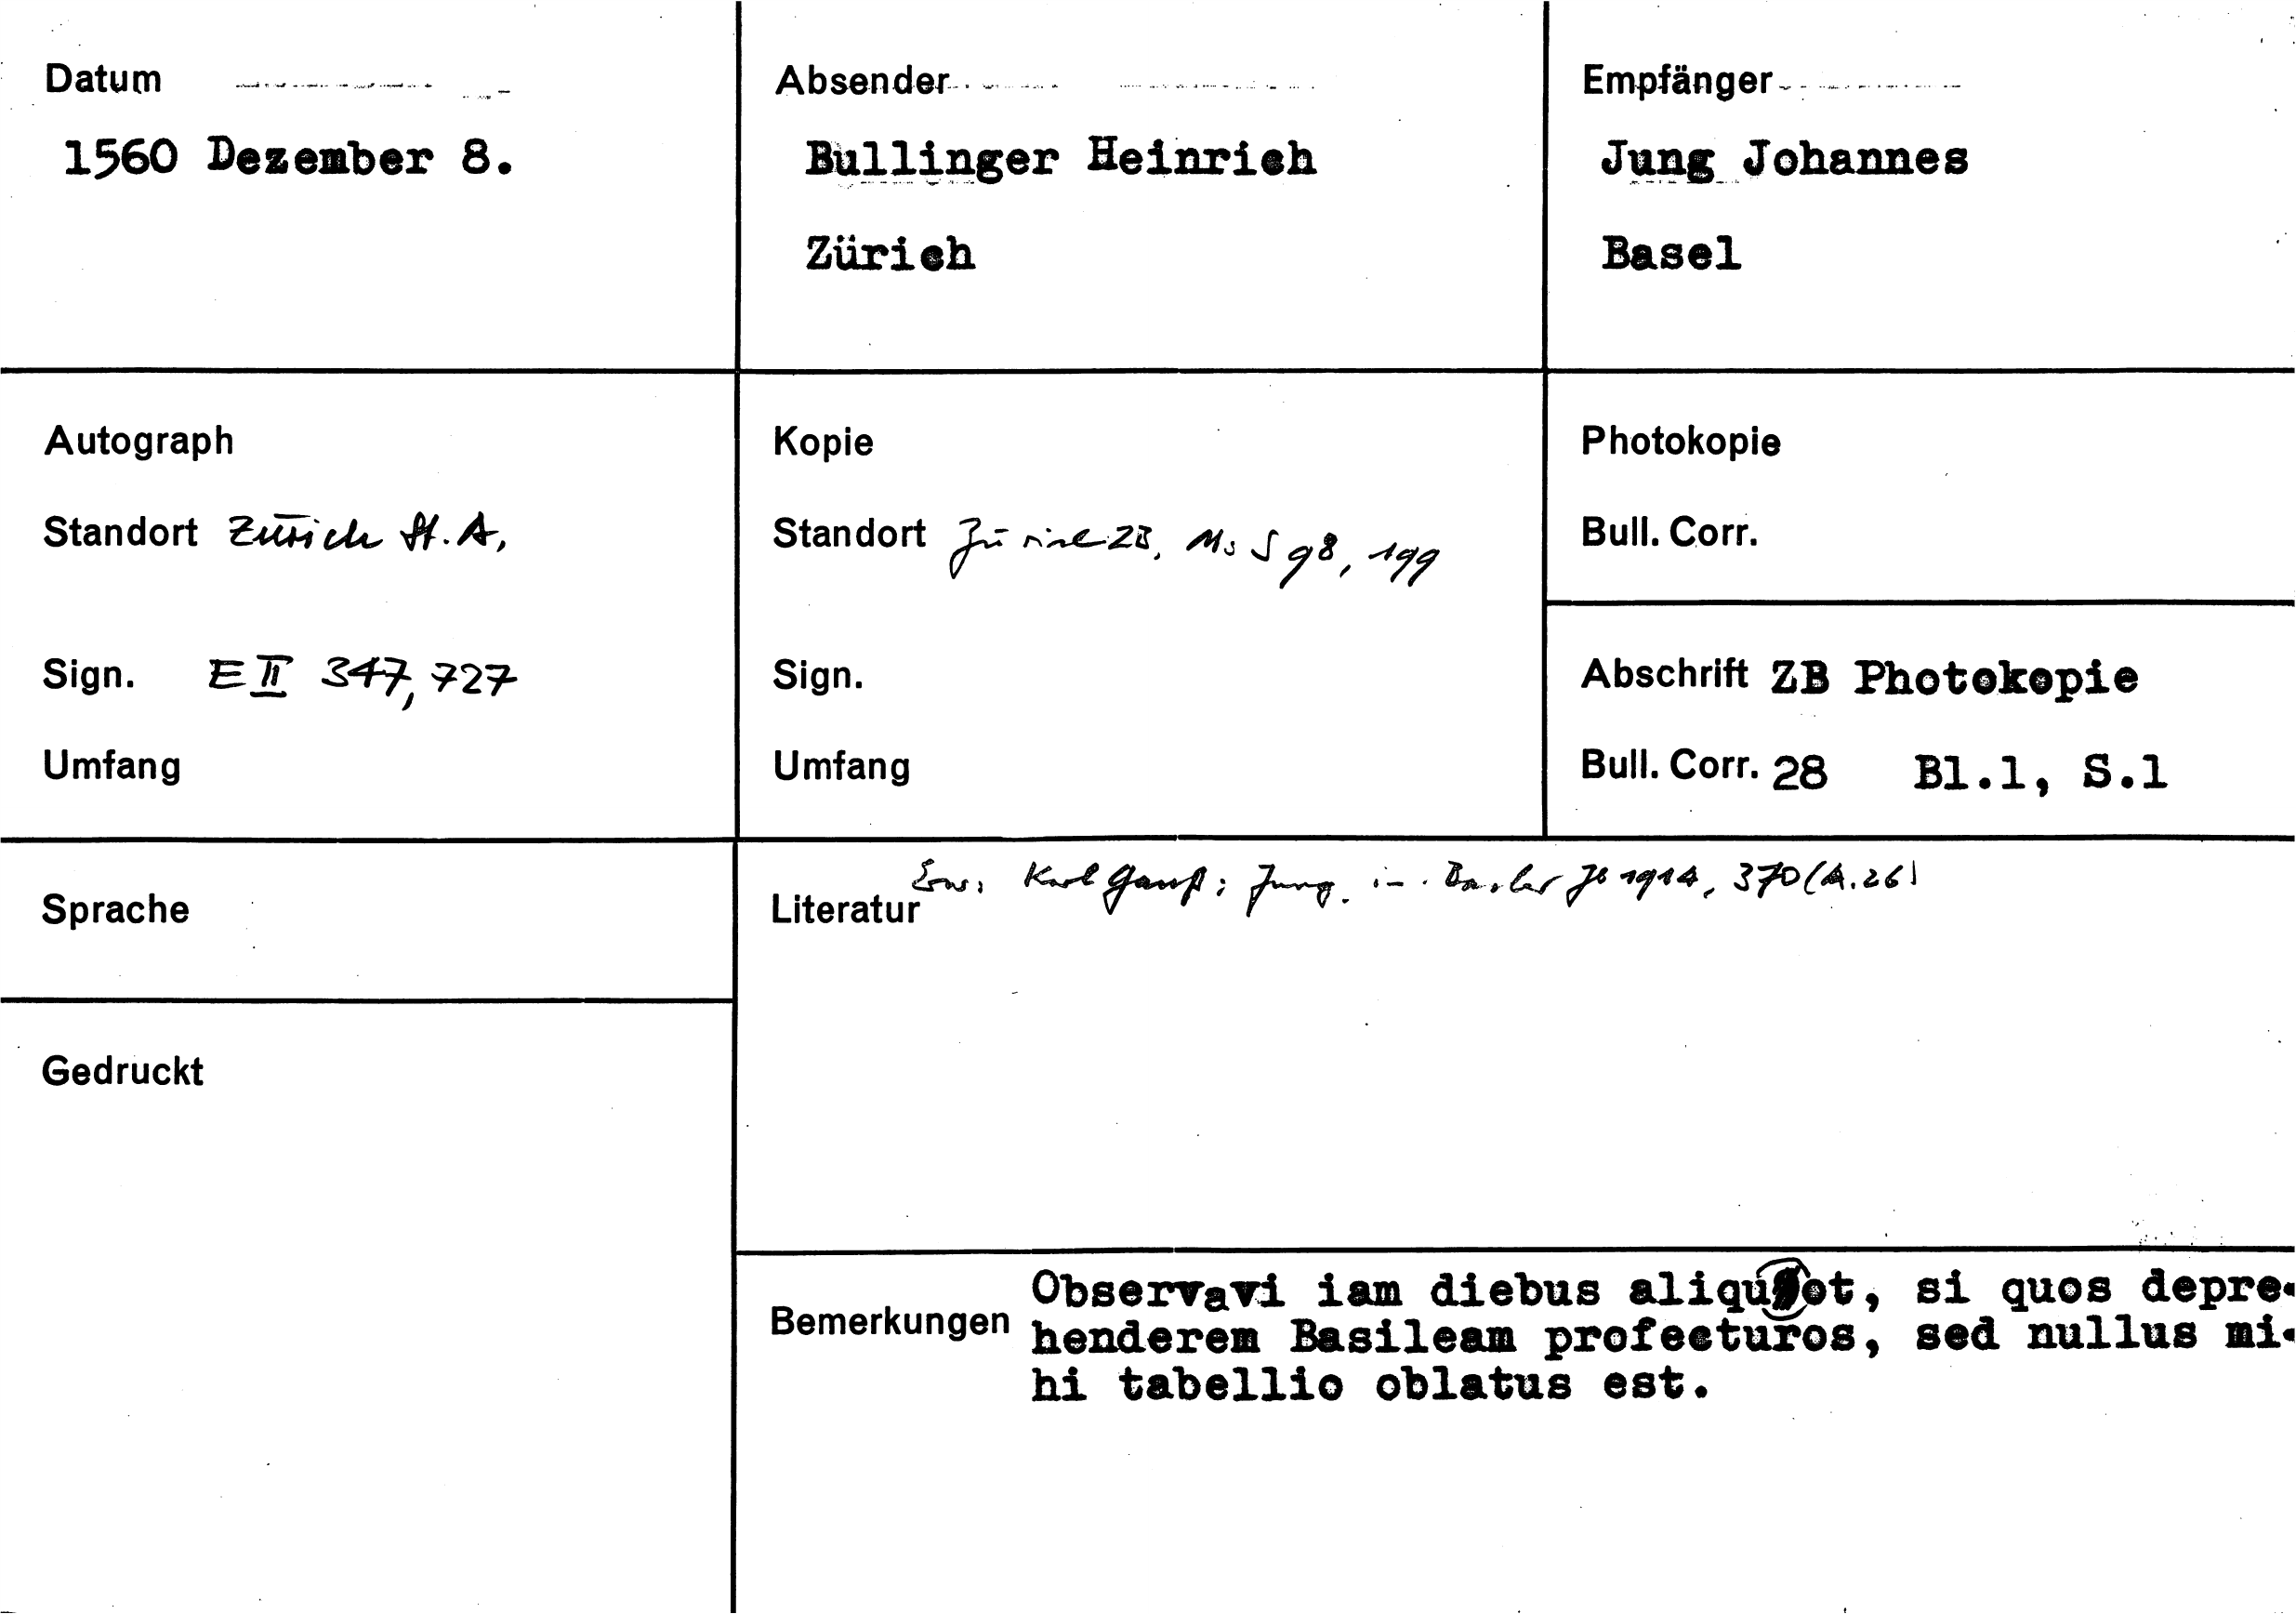 Datum
1560 Dezember 8.
Absender
Bullinger Heinrich
Zürich
Empfänger
Jung Johannes
Basel
Autograph
Standort Zürich St. A.
Sign. E II 347, 727
Umfang
Kopie
Standort Zürich ZB, Ms S 98, 199
Sign.
Umfang
Photokopie
Bull. Corr.
Abschrift ZB Photokopie
Bull. Corr. 28 Bl.1, S.1
Sprache
Gedruckt
Literatur Erw: Karl Gauß: Jung. in. Basler Jb 1914, 370 (A.26)
Bemerkungen Observavi iam diebus aliquot, si quos depre-
henderem Basileam profecturos, sed nullus mi-
hi tabellio oblatus est.